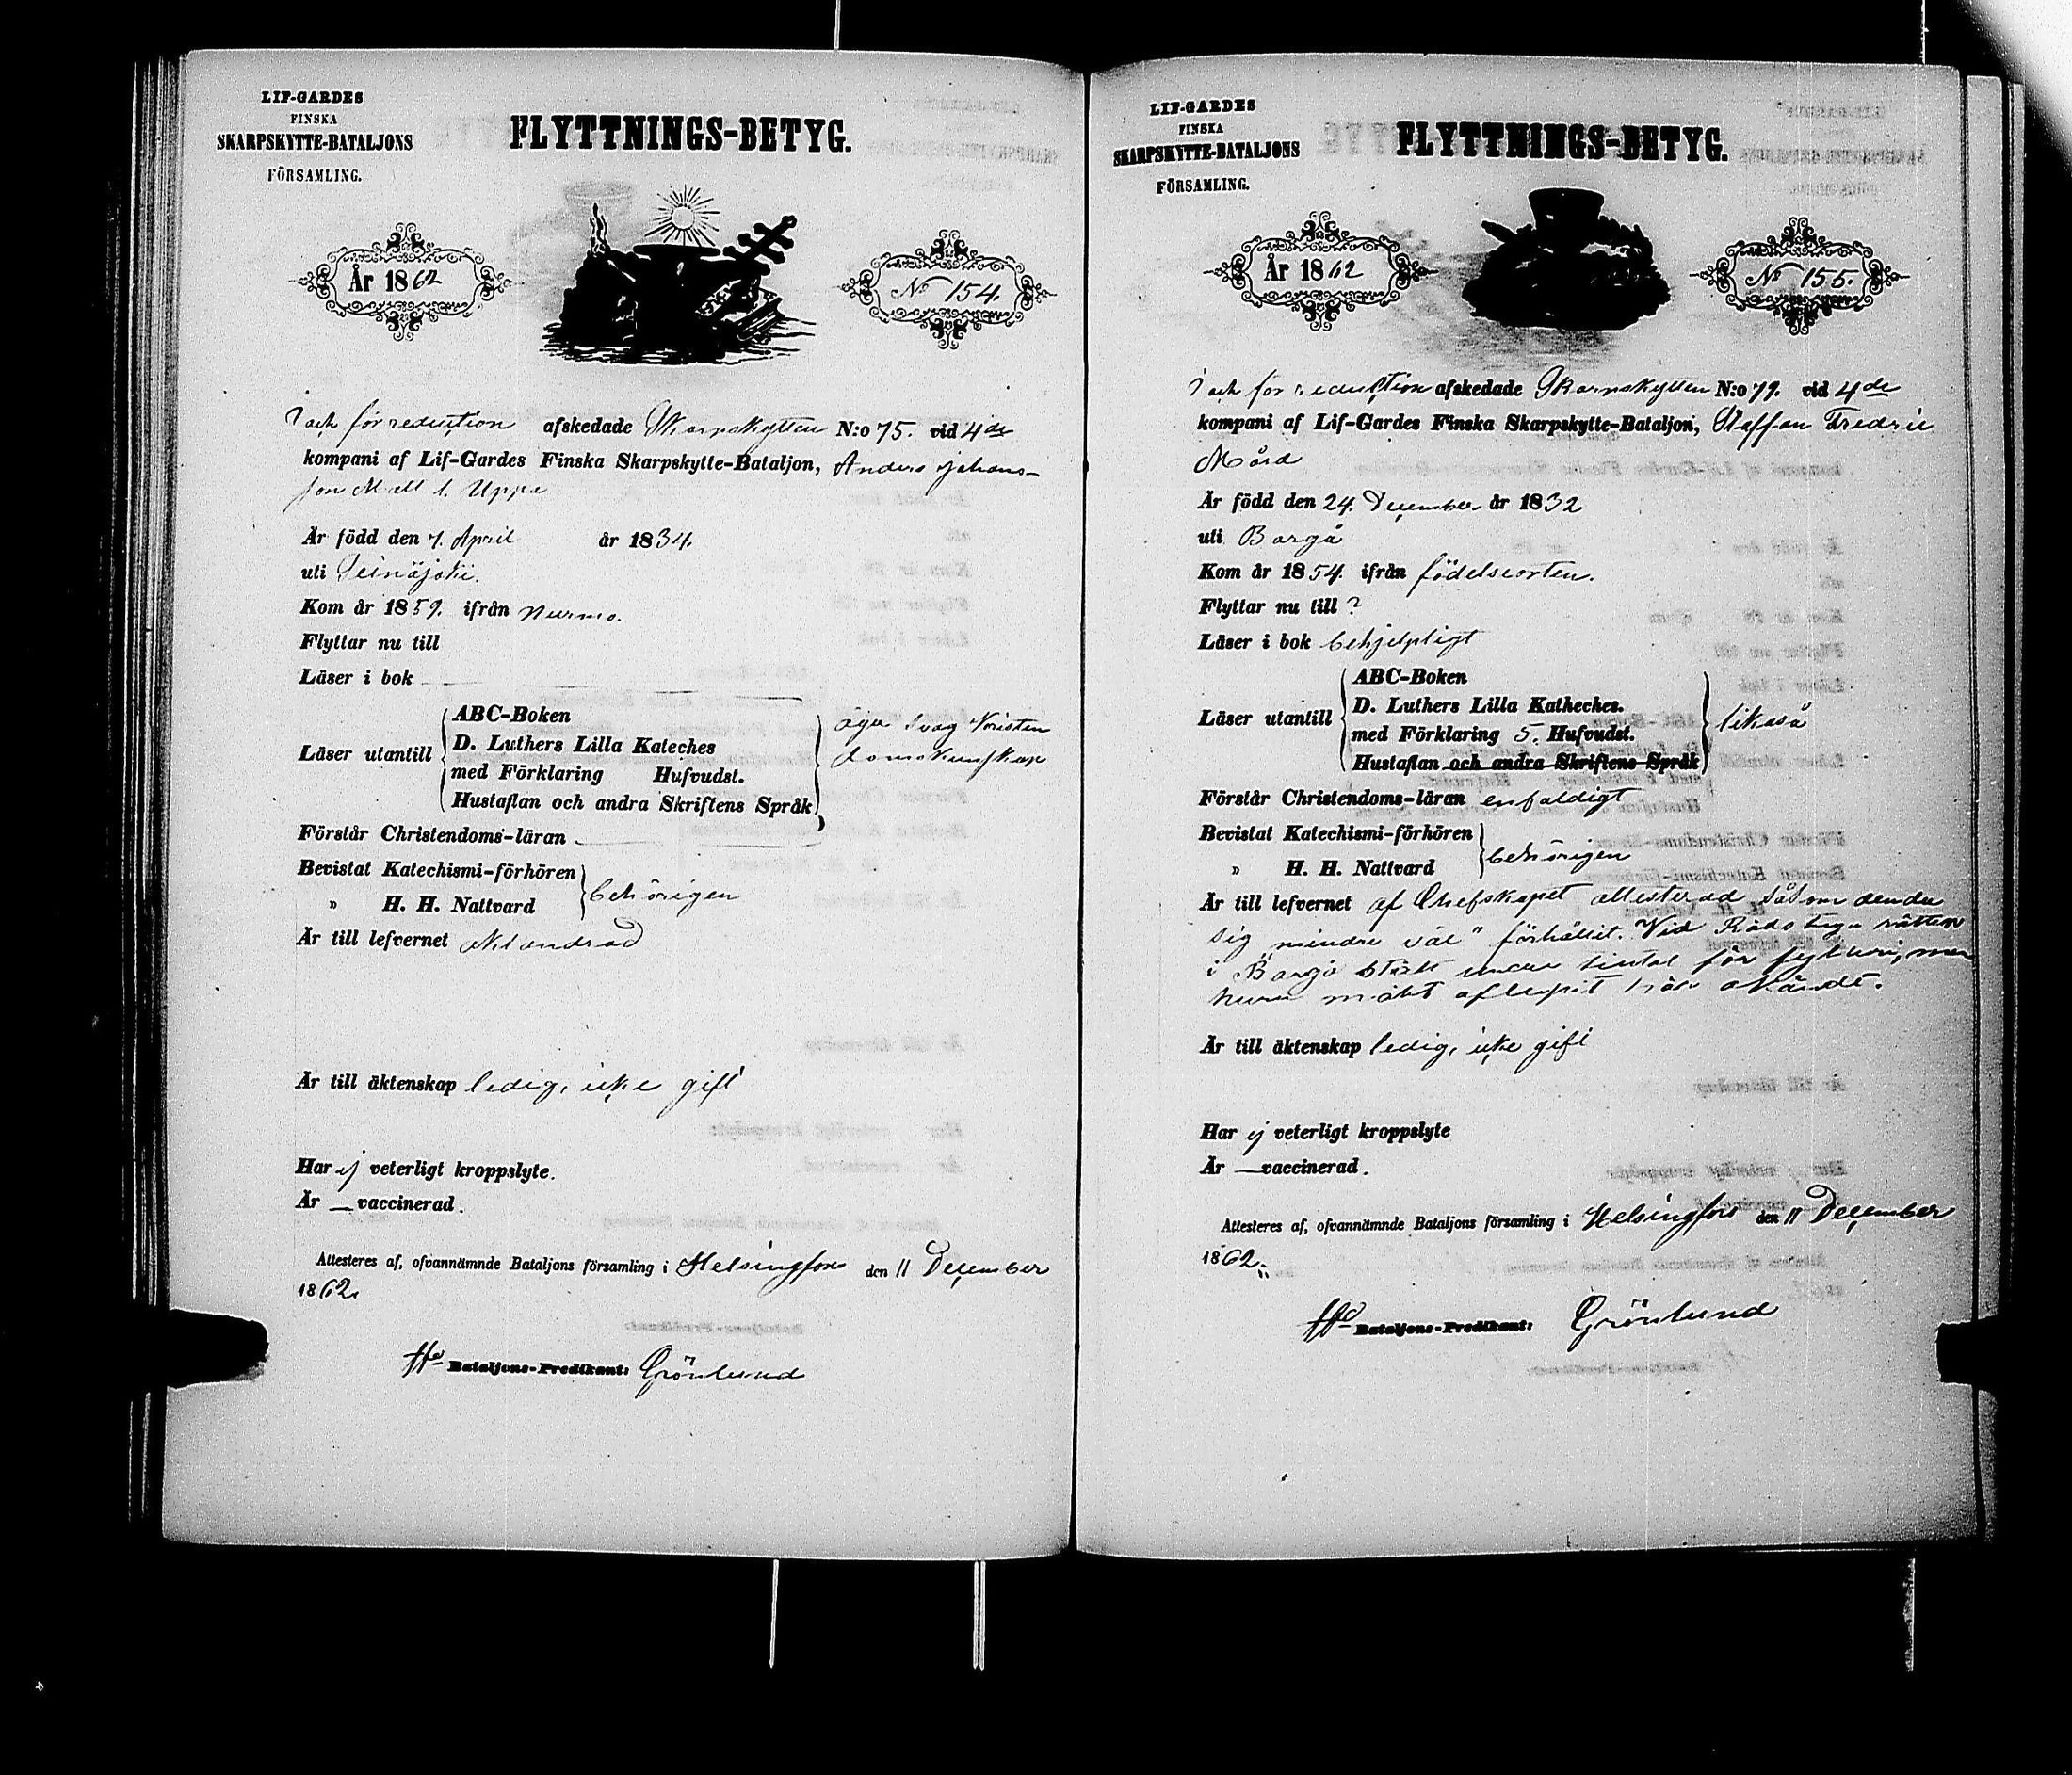 LIF-GARDES
FINSKA
SKARPSKYTTE-BATALJONS
FÖRSAMLING.
FLYTTNINGS-BETYG.
År 1862
No 154.
I och för reduction afskedade Skarpskytten N:o 75. vid 4de
kompani af Lif-Gardes Finska Skarpskytte-Bataljon, Anders Johans-
son Matt l. Uppa
Är född den 7. April år 1834.
uti Seinäjoki.
Kom år 1859. ifrån Nurmo.
Flyttar nu till
Läser i bok
Läser utantill
ABC-Boken
D. Luthers Lilla Kateches
med Förklaring Hufvudst.
Hustaflan och andra Skriftens Språk
äger svag Kristen
domskunskap
Förstår Christendoms-läran
Bevistat Katechismi-förhören
" H. H. Nattvard
behörigen
Är till lefvernet oklandrad
Är till äktenskap ledig, icke gift
Har ej veterligt kroppslyte.
Är — vaccinerad.
Attesteres af, ofvannämnde Bataljons församling i Helsingfors den 11 December
1862.
Bataljons-Predikant: Grönlund
LIF-GARDES
FINSKA
SKARPSKYTTE-BATALJONS
FÖRSAMLING.
FLYTTNINGS-BETYG.
År 1862
No 155.
I och för reduction afskedade Skarpskytten N:o 79. vid 4de
kompani af Lif-Gardes Finska Skarpskytte-Bataljon, Staffan Fredric
Mård
Är född den 24. December år 1832
uti Borgå
Kom år 1854. ifrån födelseorten.
Flyttar nu till ?
Läser i bok behjelpligt
Läser utantill
ABC-Boken
D. Luthers Lilla Katheches.
med Förklaring 5. Hufvudst.
Hustaflan och andra Skriftens Språk
likaså
Förstår Christendoms-läran enfaldigt
Bevistat Katechismi-förhören
" H. H. Nattvard
behörigen
Är till lefvernet af Chefskapet attesterad såsom den der
sig "mindre väl" förhållit. Vid Rådstugu rätten
i Borgå stått under tiltal för fylleri, men
huru målet aflupit här okändt.
Är till äktenskap ledig, icke gift
Har ej veterligt kroppslyte
Är — vaccinerad.
Attesteres af, ofvannämnde Bataljons församling i Helsingfors den 11 December
1862.
Bataljons-Predikant: Grönlund